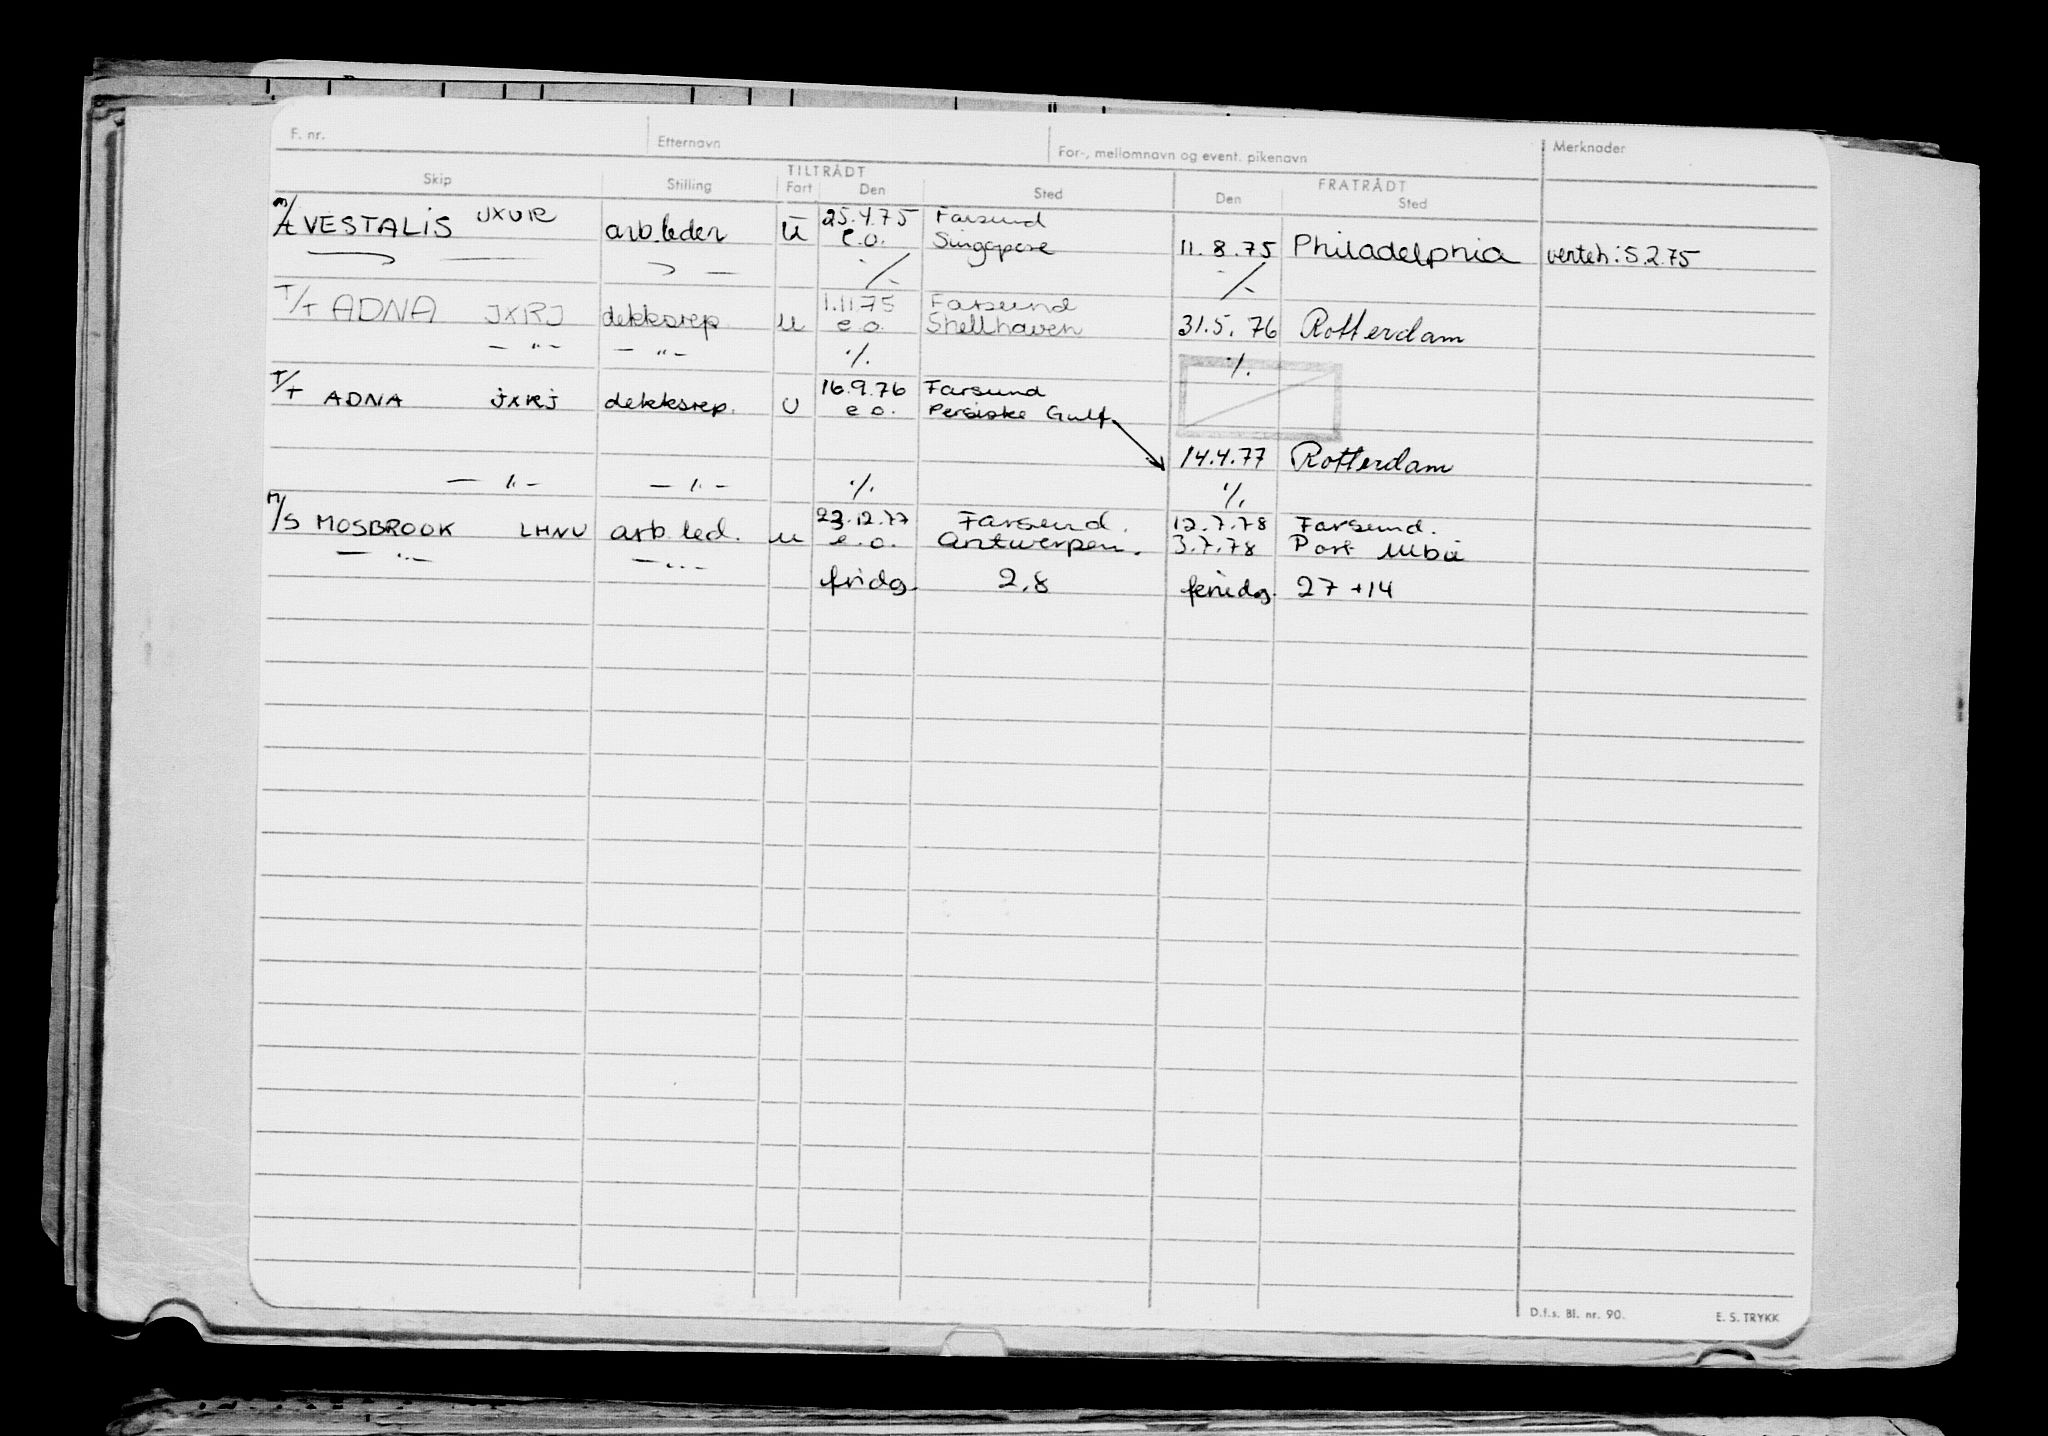 F. nr. Efternavn For-, mellomnavn og event. pikenavn Merknader
TILTRÅDT FRATRÅDT
Skip Stilling Fart Den Sted Den Sted
M/T VESTALIS JXUR arb.leder U 25.4.75 Farsund
e.o. Singapore 11.8.75 Philadelphia verteh: 5.2.75
— — ./. ./.
T/T ADNA JXRJ dekksrep. U 1.11.75 Farsund
e.o. Shellhaven 31.5.76 Rotterdam
— " — — " — ./. ./.
T/T ADNA JXRJ dekksrep. U 16.9.76 Farsund
e.o. Persiske Gulf
14.4.77 Rotterdam
— " — — " — ./. ./.
M/S MOSBROOK LHNU arb.led. u 23.12.77 Farsund. 12.7.78 Farsund.
e.o. Antwerpen. 3.7.78 Port
— " — — " —
fridg. 2.8 feriedg. 27 + 14
D.f.s. Bl. nr. 90. E. S. TRYKK